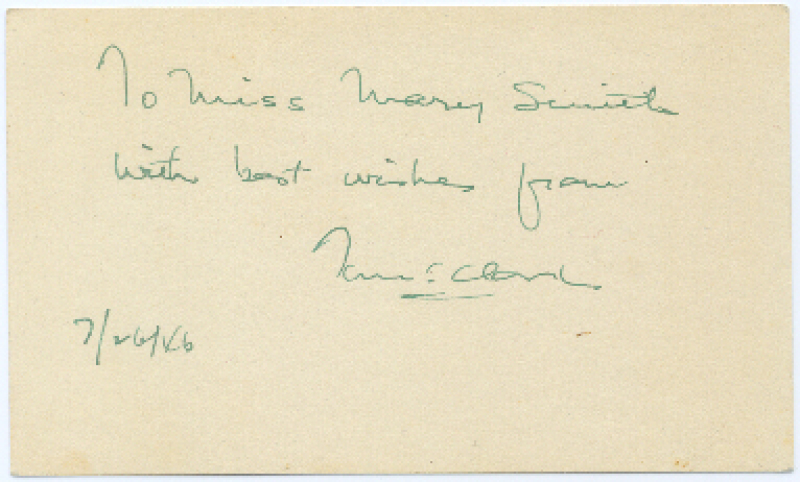 To Miss Mary Smith
with best wishes from
Tom C. Clark
7/26/46